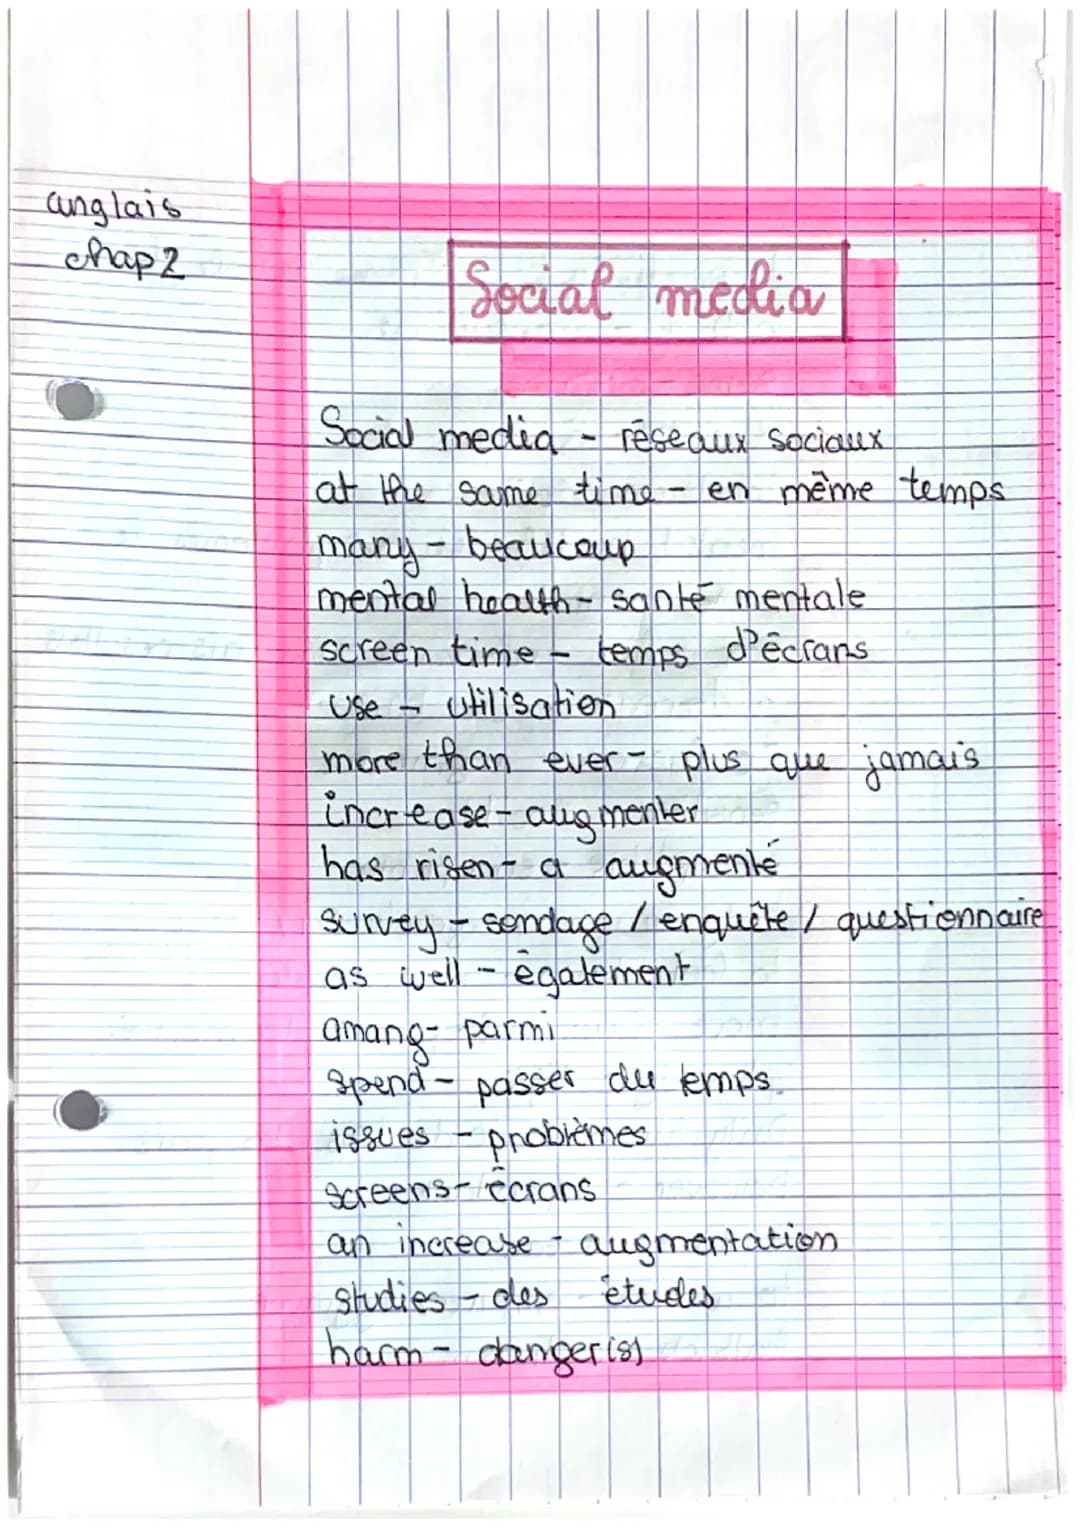 anglais
chap 2
Social media
Social media - réseaux sociaux
at the same time - en même temps
many - beaucoup
mental health - santé mentale
screen time - temps d'écrans
use - utilisation
more than ever - plus que jamais
increase - augmenter
has risen - a augmenté
survey - sondage / enquête / questionnaire
as well - également
amang - parmi
spend - passer du temps.
issues - problèmes
screens - écrans
an increase - augmentation
studies - des études
harm - danger(s)